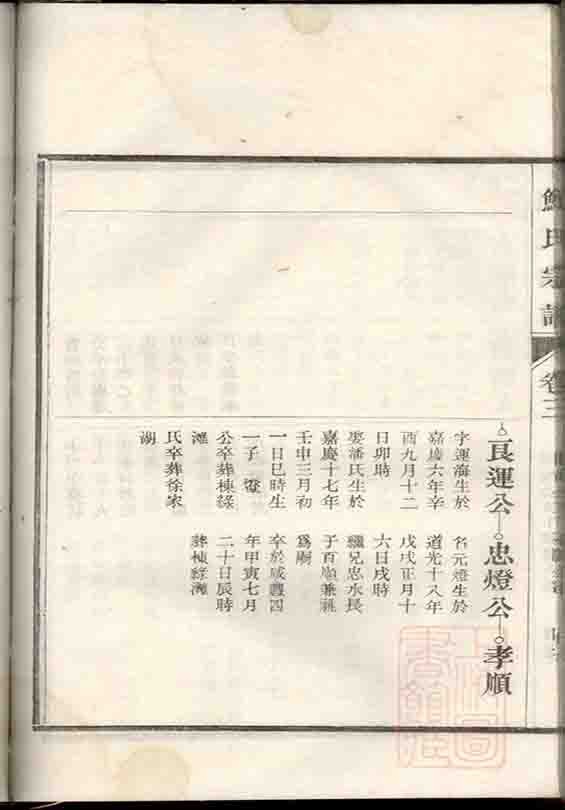 鮑氏宗譜
卷三
良運公 忠燈公 孝順
字運海生於
嘉慶六年辛
酉九月十二
日卯時
娶潘氏生於
嘉慶十七年
壬申三月初
一日巳時生
一子
公卒葬棟綠
灘
氏卒葬徐家
湖
名元燈生於
道光十八年
戊戌正月十
六日戌時
繼兄忠水長
子百順兼祧
為嗣
卒於咸豐四
年甲寅七月
二十日辰時
葬棟綠灘